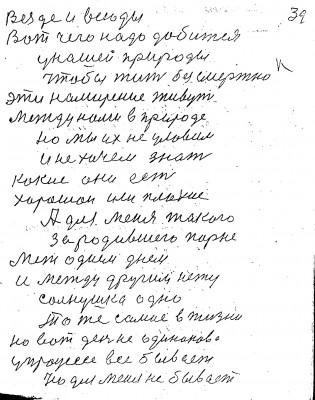 Везде и всюды 39
Вот чего надо добится
у нашей природы
чтобы жит бесмертно
эти намирение живут
Между нами в природе
но мы их не уловим
и не хочем знат
какие они ест
хорошои или плохие
А для меня такого
Зародившего парне
Меж одним днем
и между другим нету
солнушка одно
То же самое в жизни
но вот ден не одинаково
упроцессе все бывает
Но для меня не бывает